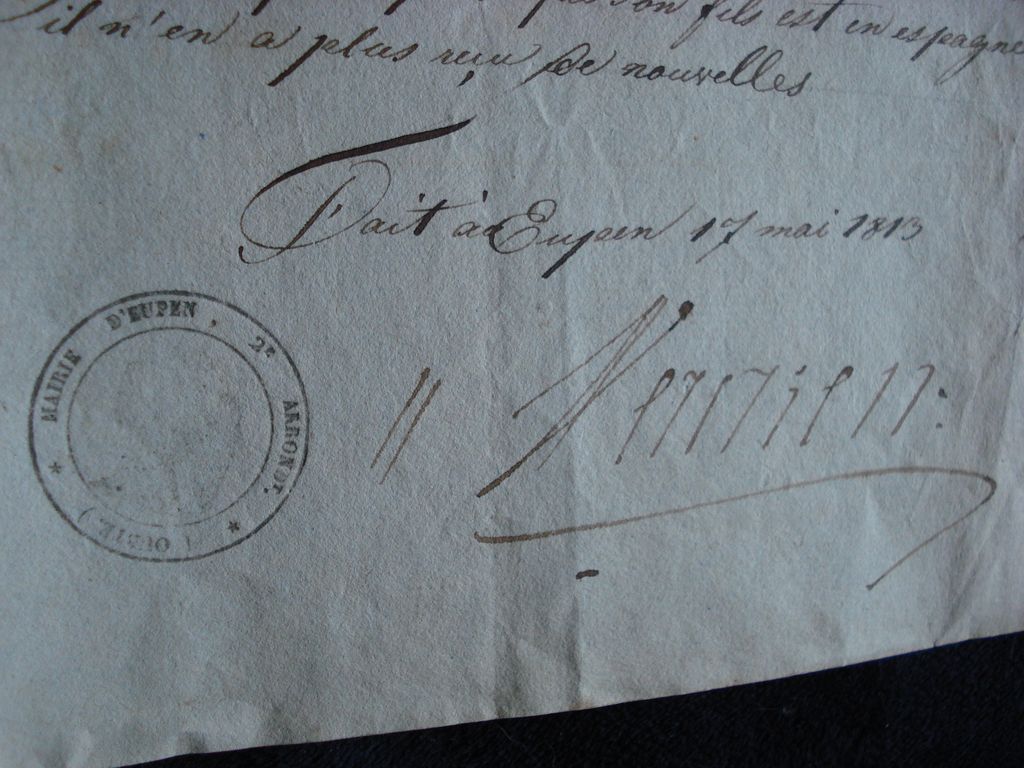 son fils est en espagne
il n'en a plus reçu de nouvelles
Fait à Eupen 17 mai 1813
MAIRIE D'EUPEN, 2e ARRONDT.
(OURTE)